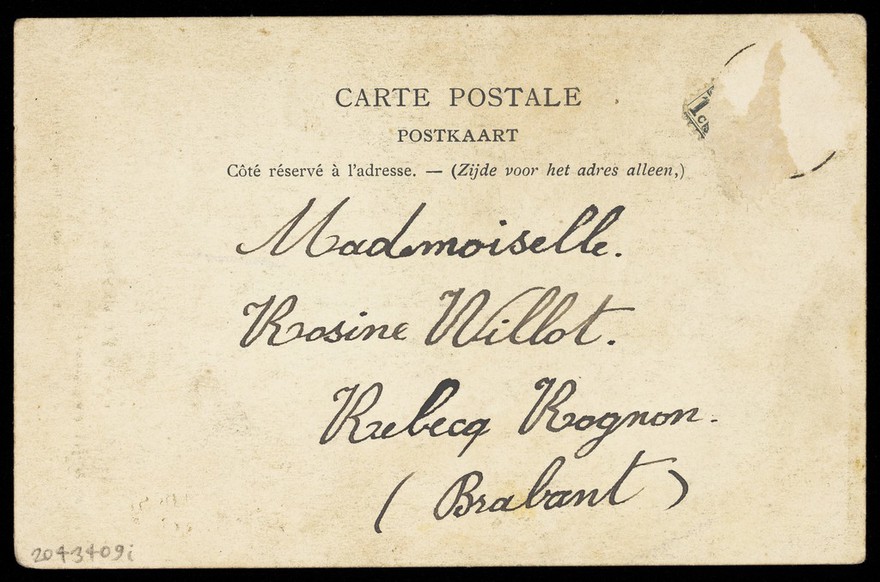 CARTE POSTALE
POSTKAART
Côté réservé à l'adresse. — (Zijde voor het adres alleen,)
Mademoiselle.
Rosine Willot.
Rebecq Rognon.
(Brabant)
2043409i